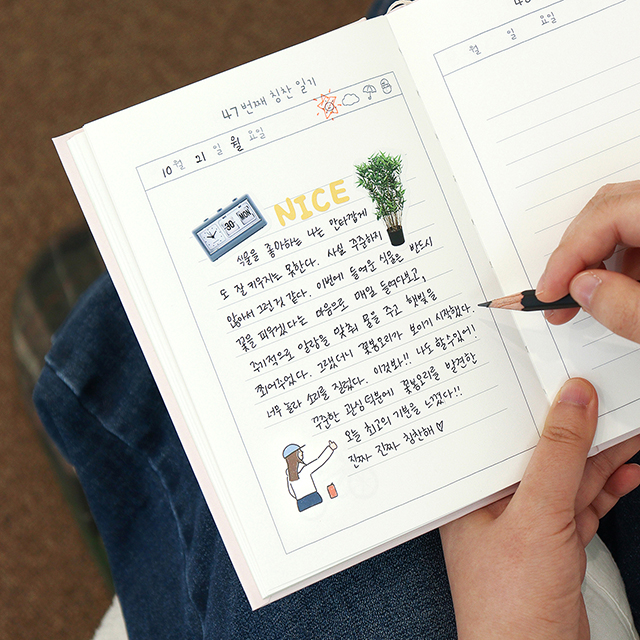 47 번째 칭찬 일기
10 월 21 일 월 요일
30 MON
NICE
식물을 좋아하는 나는 안타깝게
도 잘 키우지는 못한다. 사실 꾸준하지
않아서 그런 것 같다. 이번에 들여온 식물은 반드시
꽃을 피우게 있다는 마음으로 매일 들여다보고,
주기적으로 양랑을 맞춰 물을 주고 햇빛을
쬐어주었다. 그랬더니 꽃봉오리가 보이기 시작했다.
너무 놀라 소리를 질렀다. 이것봐!! 나도 할 수 있어!
꾸준한 관심 덕분에 꽃봉오리를 발견한
오늘 최고의 기분을 느꼈다!!
진짜 진짜 칭찬해 ♡
48
월 일 요일